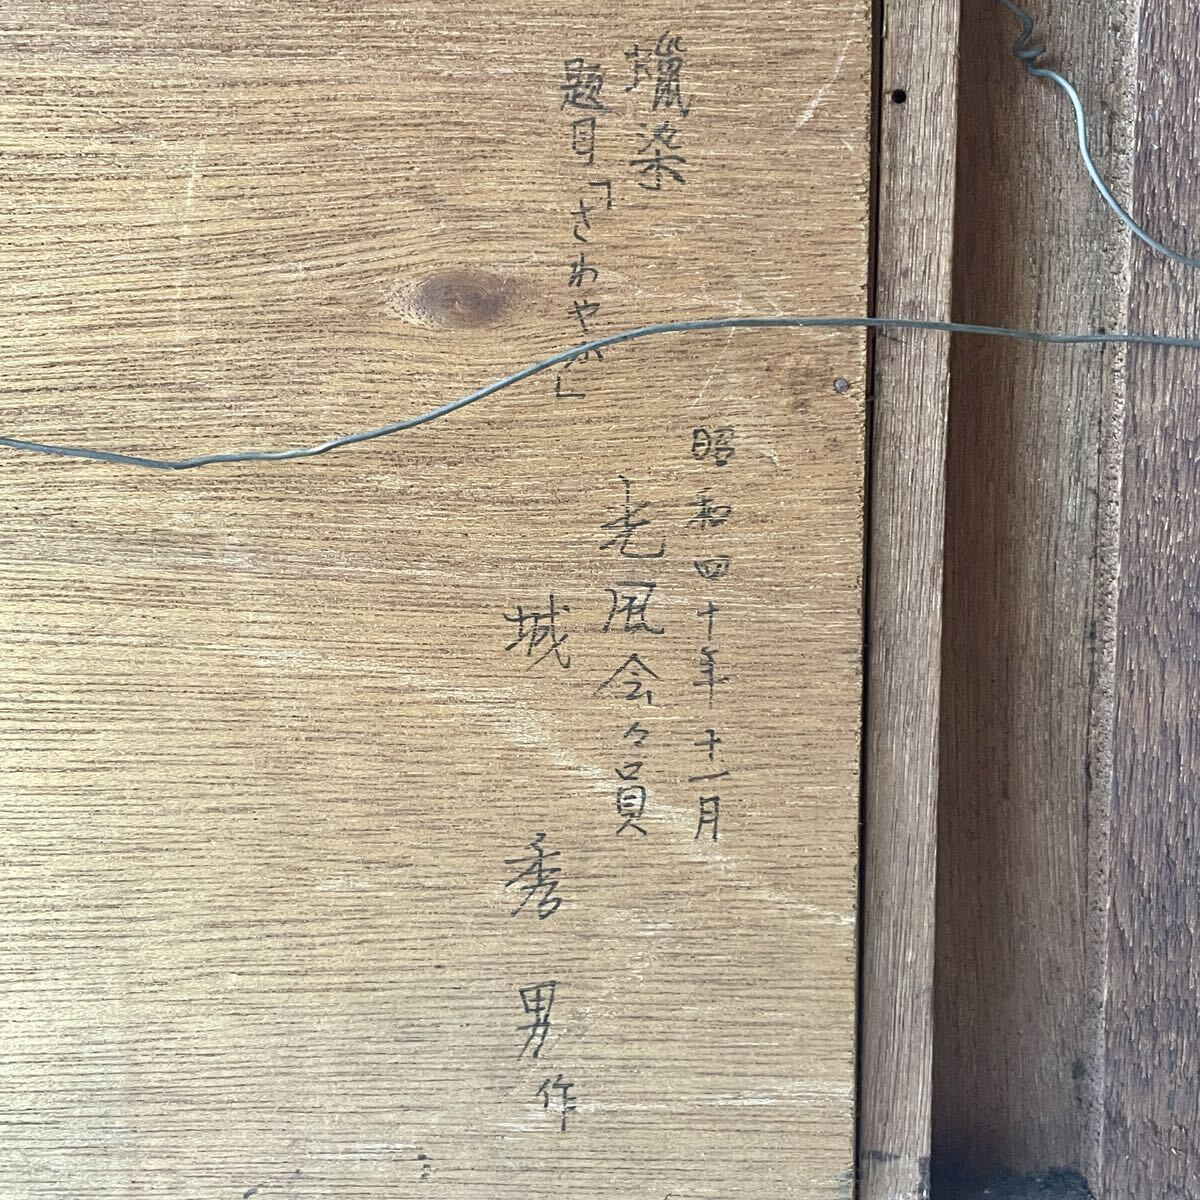 蠟染
題目「さわやか」
昭和四十年十一月
光風会々員
城秀男作